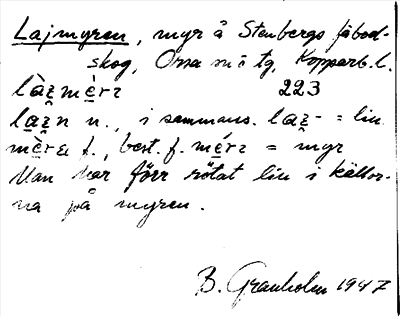 Lajmyren, myr å Stenbergs fäbod-
skog, Orsa s:n o tg, Kopparb. l.
làz̯mè̱rɪ 223
la̱z̯n n., i sammans. la̱z̯- = lin
mè̱ra f., best. f. mé̱rɪ = myr
Man har förr rötat lin i källor-
na på myren.
B. Granholm 1947